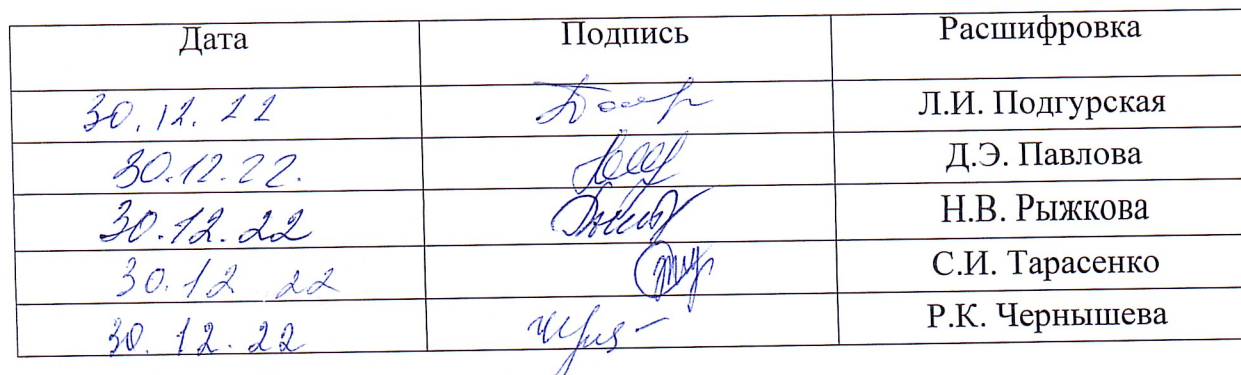 Дата Подпись Расшифровка
30.12.22 Л.И. Подгурская
30.12.22. Д.Э. Павлова
30.12.22 Н.В. Рыжкова
30.12.22 С.И. Тарасенко
30.12.22 Р.К. Чернышева